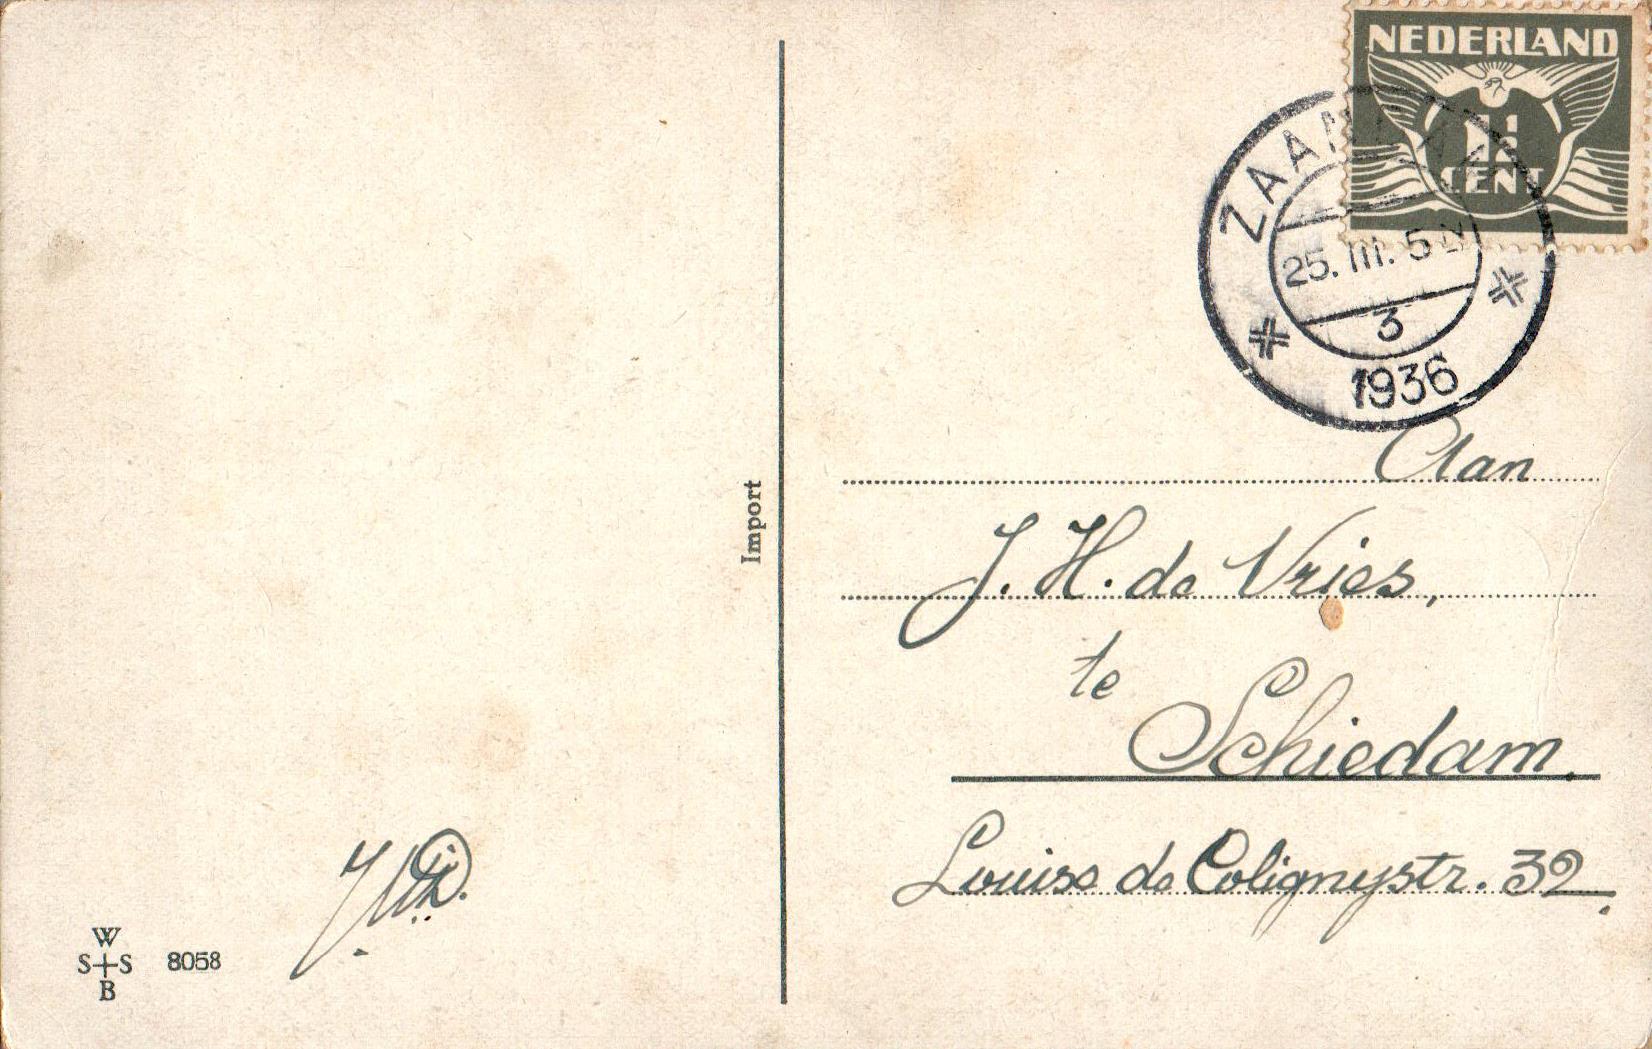 NEDERLAND
1½
CENT
ZAANDAM
25.III.5N
3
1936
Import
Aan
J. H. de Vries,
te
Schiedam.
Louise de Colignystr. 32.
W
S S
B
8058